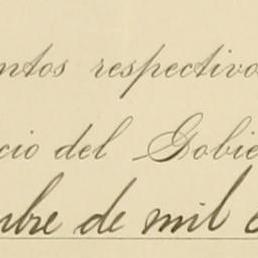 ntos respectivo
cio del Gobie
mbre de mil